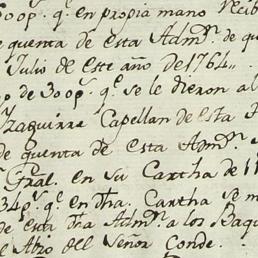 300p.s q.e en propia mano Recib
e quenta de esta Adm.on de qu
Julio de este año de 1764,,
p de 300p.s q.e se le dieron al
Yzaguirre Capellan de esta
de quenta de esta Adm.on
Gral. en su Cartha de 11
34p.s q.e en dha. Cartha se m
de esta dha Adm.on a los Baqu
el Abio del Señor Conde.